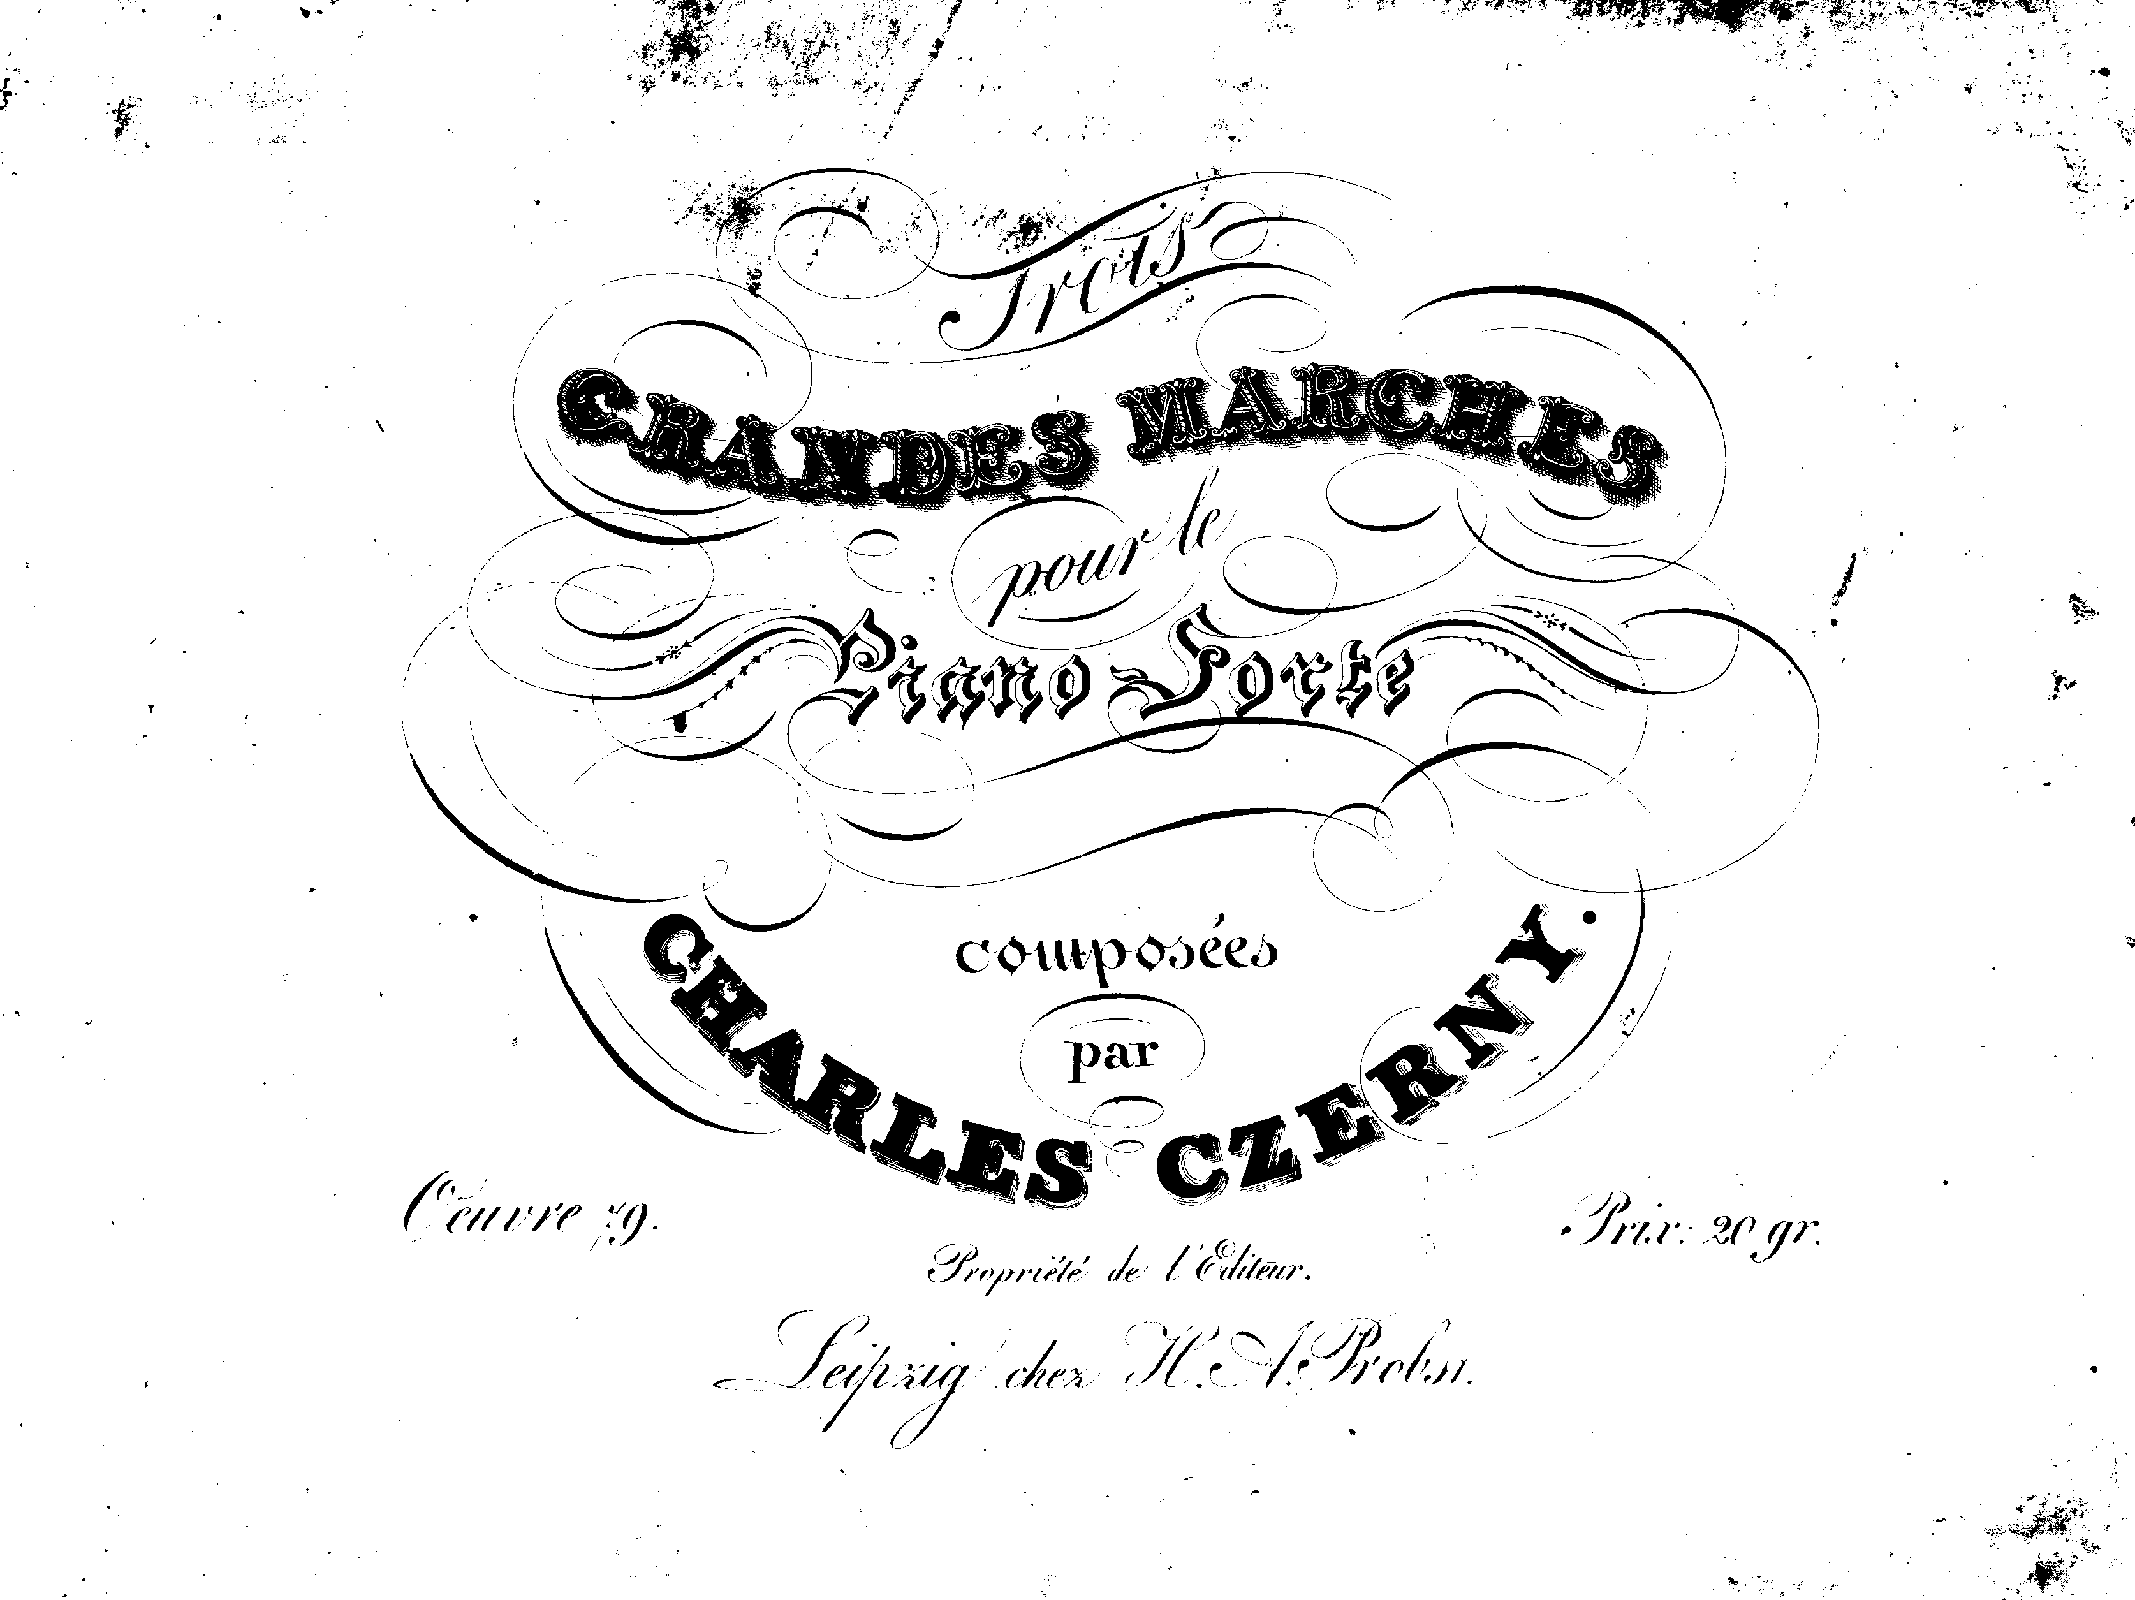 Trois
GRANDES MARCHES
pour le
Piano Forte
composées
par
CHARLES CZERNY.
Oeuvre 79.
Prix: 20 gr.
Propriété de l'Editeur.
Leipzig chez H. A. Probst.